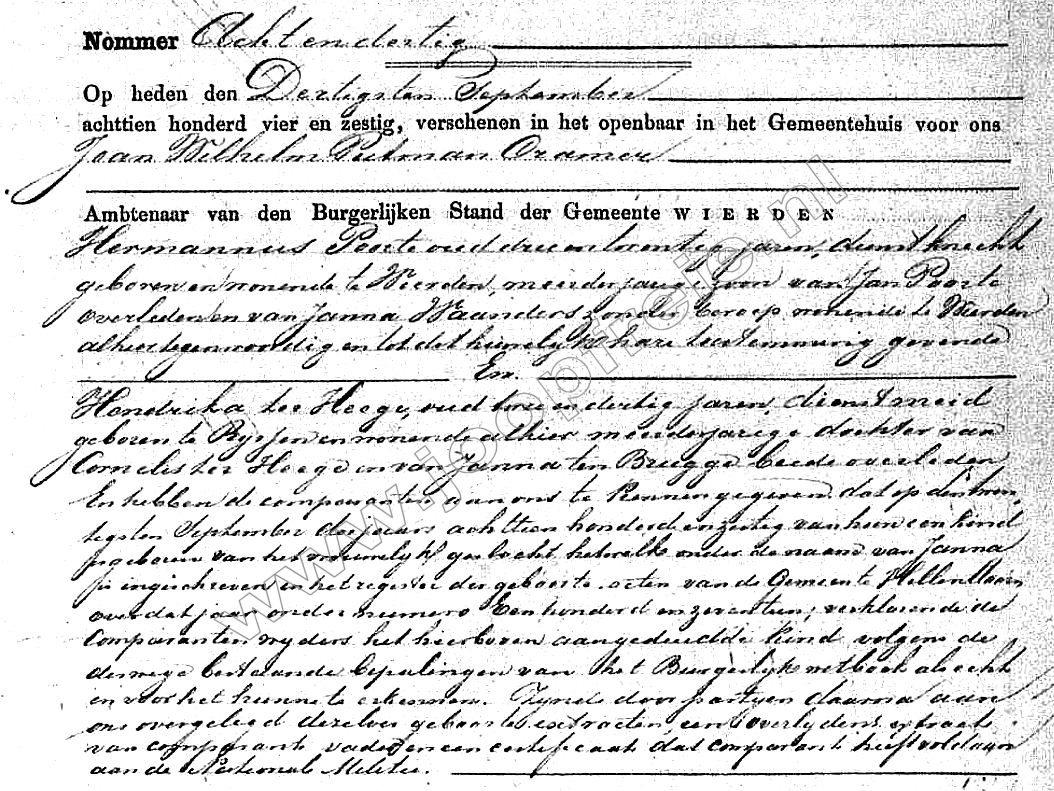 Nommer Acht en dertig
Op heden den Dertigsten September
achttien honderd vier en zestig, verschenen in het openbaar in het Gemeentehuis voor ons
Joan Wilhelm Putman Cramer
Ambtenaar van den Burgerlijken Stand der Gemeente WIERDEN
Hermannus Poorte oud drie en twentig jaren, dienstknecht
geboren en wonende te Wierden, meerderjarige zoon van Jan Poorte
overleden en van Janna Waanders zonder beroep wonende te Wierden
alhier tegenwoordig en tot dit huwelijk hare toestemming gevende
En
Hendrika ter Hoege, oud twee en dertig jaren, dienstmeid
geboren te Ryssen en wonende alhier meerderjarige dochter van
Cornelis ter Hoege en van Janna ten Brugge beide overleden
En hebben de comparanten aan ons te kennen gegeven dat op den twin
tigsten September des jaars achttien honderd en zestig van hun een kind
is geboren van het vrouwelijk geslacht hetwelk onder de naam van Janna
is ingeschreven in het register der geboorte acten van de Gemeente Hellendoorn
over dat jaar onder numero Een honderd en zeventien; verklarende de
Comparanten wyders het hierboven aangeduidde kind volgens de
deswege bestaande bepalingen van het Burgerlijk wetboek als echt
en voor het hunne te erkennen. Zynde door partyen daarna aan
ons overgelegd derzelver geboorte extracten, een overlydens extract
van comparants vader en een certificaat dat comparant heeft voldaan
aan de Nationale Militie.
www.joopfreie.nl